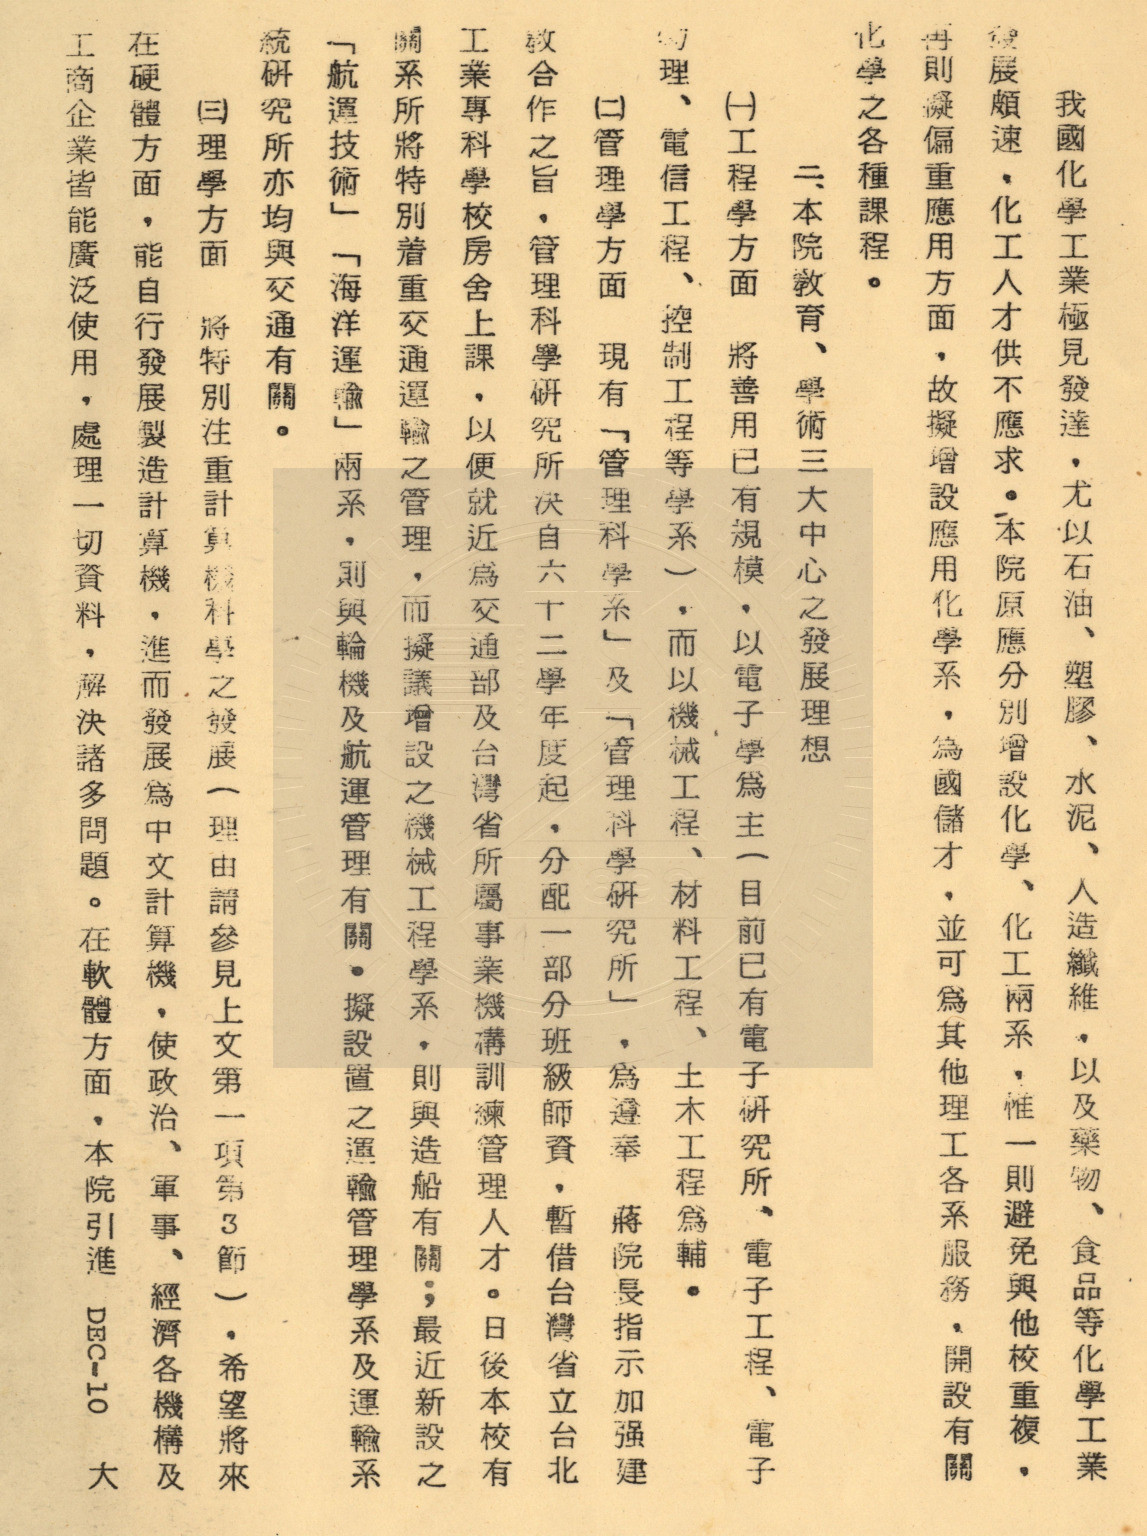 我國化學工業極見發達，尤以石油、塑膠、水泥、人造纖維，以及藥物、食品等化學工業
發展頗速，化工人才供不應求。本院原應分別增設化學、化工兩系，惟一則避免與他校重複，
再則擬偏重應用方面，故擬增設應用化學系，為國儲才，並可為其他理工各系服務，開設有關
化學之各種課程。
二、本院教育、學術三大中心之發展理想
㈠工程學方面　將善用已有規模，以電子學為主（目前已有電子研究所、電子工程、電子
物理、電信工程、控制工程等學系），而以機械工程、材料工程、土木工程為輔。
㈡管理學方面　現有「管理科學系」及「管理科學研究所」，為遵奉　蔣院長指示加强建
教合作之旨，管理科學研究所決自六十二學年度起，分配一部分班級師資，暫借台灣省立台北
工業專科學校房舍上課，以便就近為交通部及台灣省所屬事業機構訓練管理人才。日後本校有
關系所將特別着重交通運輸之管理，而擬議增設之機械工程學系，則與造船有關；最近新設之
「航運技術」「海洋運輸」兩系，則與輪機及航運管理有關。擬設置之運輸管理學系及運輸系
統研究所亦均與交通有關。
㈢理學方面　將特別注重計算機科學之發展（理由請參見上文第一項第3節），希望將來
在硬體方面，能自行發展製造計算機，進而發展為中文計算機，使政治、軍事、經濟各機構及
工商企業皆能廣泛使用，處理一切資料，解決諸多問題。在軟體方面，本院引進 DEC-10 大